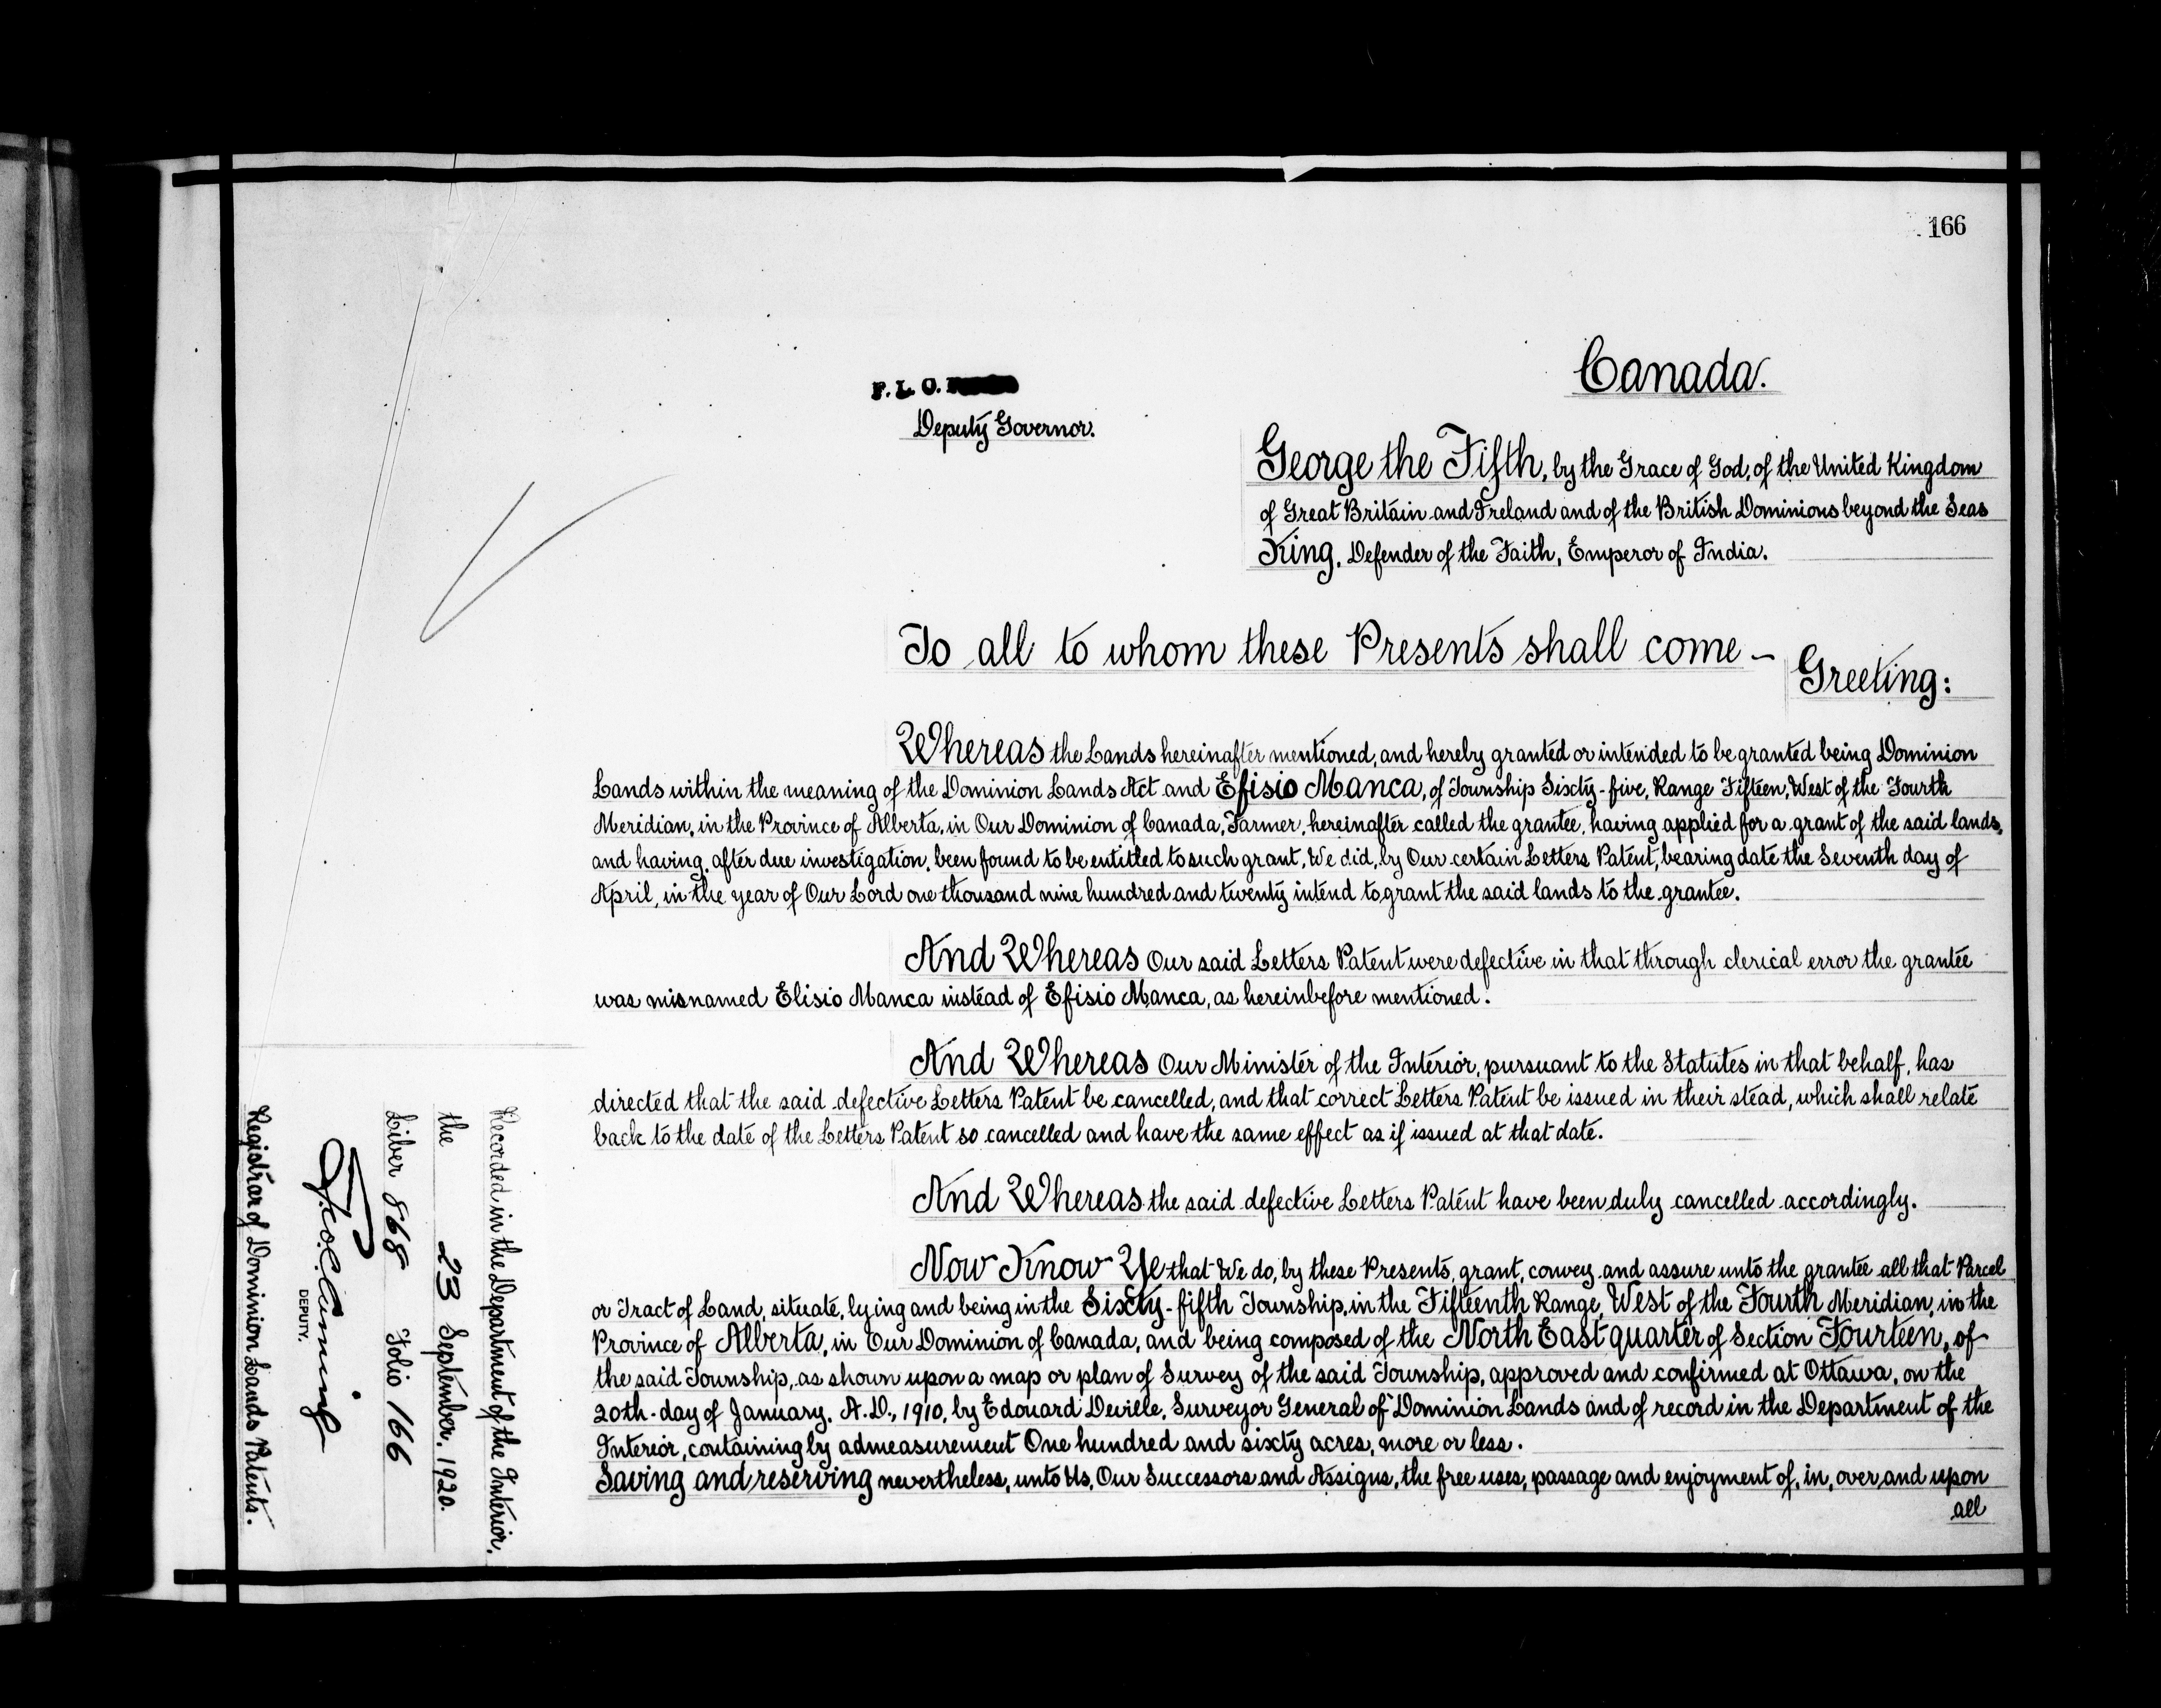 166
Canada.
F. L. O.
Deputy Governor.
George the Fifth, by the Grace of God, of the United Kingdom
of Great Britain and Ireland and of the British Dominions beyond the Seas
King, Defender of the Faith, Emperor of India.
To all to whom these Presents shall come –
Greeting:
Whereas the Lands hereinafter mentioned, and hereby granted or intended to be granted being Dominion
Lands within the meaning of the Dominion Lands Act and Efisio Manca, of Township Sixty-five, Range Fifteen, West of the Fourth
Meridian, in the Province of Alberta, in Our Dominion of Canada, Farmer, hereinafter called the grantee, having applied for a grant of the said lands,
and having, after due investigation, been found to be entitled to such grant, We did, by Our certain Letters Patent, bearing date the Seventh day of
April, in the year of Our Lord one thousand nine hundred and twenty intend to grant the said lands to the grantee.
And Whereas Our said Letters Patent were defective in that through clerical error the grantee
was misnamed Elisio Manca instead of Efisio Manca, as hereinbefore mentioned.
And Whereas Our Minister of the Interior, pursuant to the Statutes in that behalf, has
directed that the said defective Letters Patent be cancelled, and that correct Letters Patent be issued in their stead, which shall relate
back to the date of the Letters Patent so cancelled and have the same effect as if issued at that date.
And Whereas the said defective Letters Patent have been duly cancelled accordingly.
Now Know Ye that We do, by these Presents, grant, convey and assure unto the grantee all that Parcel
or Tract of Land, situate, lying and being in the Sixty-fifth Township, in the Fifteenth Range, West of the Fourth Meridian, in the
Province of Alberta, in Our Dominion of Canada, and being composed of the North East quarter of Section Fourteen, of
the said Township, as shown upon a map or plan of Survey of the said Township, approved and confirmed at Ottawa, on the
20th day of January. A.D., 1910, by Edouard Deville, Surveyor General of Dominion Lands and of record in the Department of the
Interior, containing by admeasurement One hundred and sixty acres, more or less.
Saving and reserving nevertheless, unto Us, Our Successors and Assigns, the free uses, passage and enjoyment of, in, over and upon
all
Recorded in the Department of the Interior,
the 23 September. 1920.
Liber 868 Folio 166
DEPUTY.
Registrar of Dominion Lands Patents.